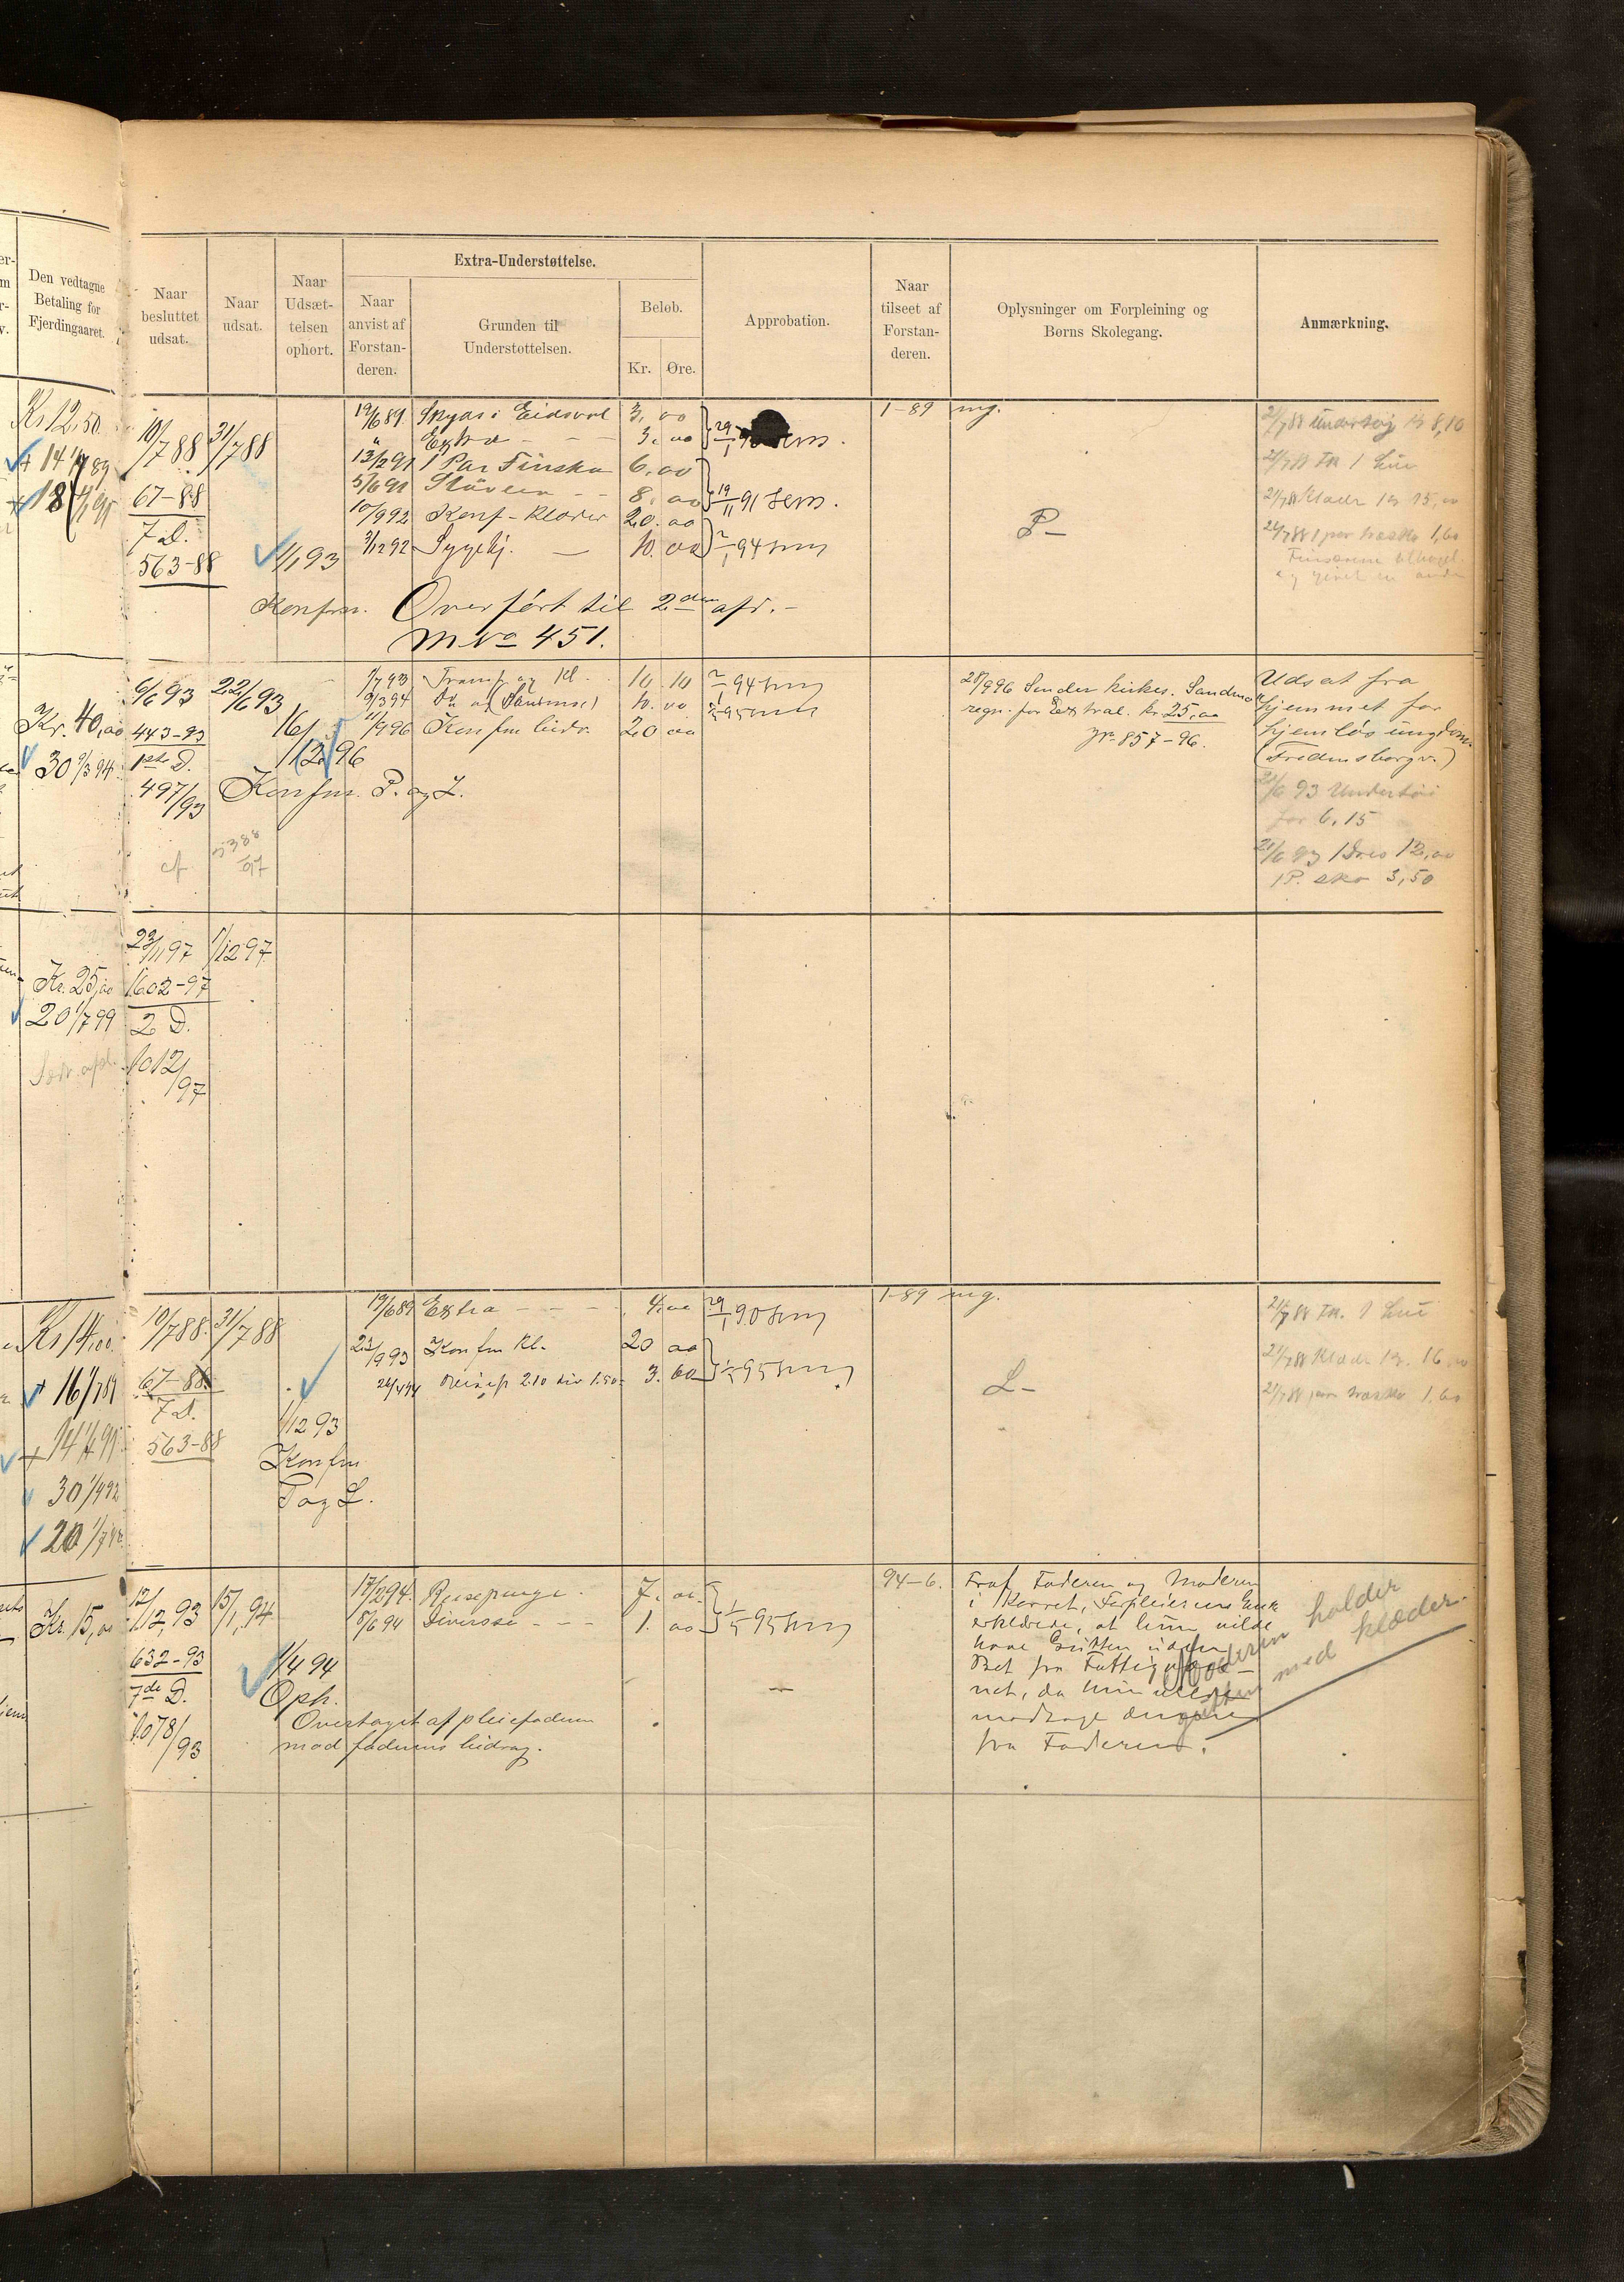 Den vedtagne
Betaling for
Fjerdingaaret.
Naar
besluttet
udsat.
Naar
udsat.
Naar
Udsæt-
telsen
ophørt.
Extra-Understøttelse.
Naar
anvist af
Forstan-
deren.
Grunden til
Understøttelsen.
Beløb.
Kr. Øre.
Approbation.
Naar
tilseet af
Forstan-
deren.
Oplysninger om Forpleining og
Børns Skolegang.
Anmærkning.
Kr 12,50.
+ 14 1/7 89
+ 18
10/7 88 31/7 88
67-88
7 D.
563-88
1/1 93
Konfm.
19/6 89 Skyds i Eidsvol 3. 00
" Extra - - - 3. 00
13/2 91 1 Par Finsko 6. 00
5/6 91 Støvler - - 8. 00
10/9 92 Konf-Klæder 20. 00
3/12 92 Sygehj. — 10. 00
29/1 90
19/11 91
2/1 94
Overført til 2den afd. -
M No 451.
1-89 mg.
P-
21/7 88 Undertøj kr 8,10
21/7 88 1 Lue
21/7 88 Klæder kr 15,00
24/7 88 1 par træsko 1,60
Kr. 40,00
30 9/3 94
6/6 93 22/6 93
443-93
1ste D.
497/93
16/12 96
Konfm. P. og L.
cf. 5388/97
1/7 93 Transp og Kl. 10. 10
9/3 94 Do 10. 00
11/9 96 Konfm bidr. 20 00
2/1 94
28/9 96 Sender kirkes.
regn. for Extral. kr 25,00
Jr. 857-96.
Udsat fra
hjemmet for
hjemløs ungdom.
(Fredensborgv.)
21/6 93 Undertøi
for 6,15
21/6 93 1 Dres 12,00
1 P. sko 3,50
Kr. 25,00
20 1/7 99
23/11 97 1/12 97
1602-97
2 D.
1012/97
Kr 14,00.
+ 16 1/7 89
30 1/4 92
20
10/7 88. 31/7 88
67-88
7 D.
563-88
1/12 93
Konfm
P og L.
19/6 89 Extra - - - 4. 00
23/9 93 Konfm Kl. 20 00
26/4 94 Reisep 2.10 div 1.50 3. 60
29/1 90
1-89 mg.
L-
21/7 88 1 Lue
21/7 88 Klæder kr. 16,00
21/7 88 par træsko 1,60
Kr. 15,00
12/12 93 15/1 94
632-93
7de D.
1078/93
1/4 94
Oph.
Overtaget af pleiefaderen
mod faderens bidrag.
17/2 94. Reisepenge. 7. 00
8/6 94 Diverse - - - 1. 00
94-6. Traf Faderen og Moderen
i Kvarret, Forpleierens Enke
erklærede, at hun vilde
have Gutten uden
Bet fra Fattigvæse-
net, da hun vilde
modtage
fra Faderen.
Moderen holder
gutten med klæder.